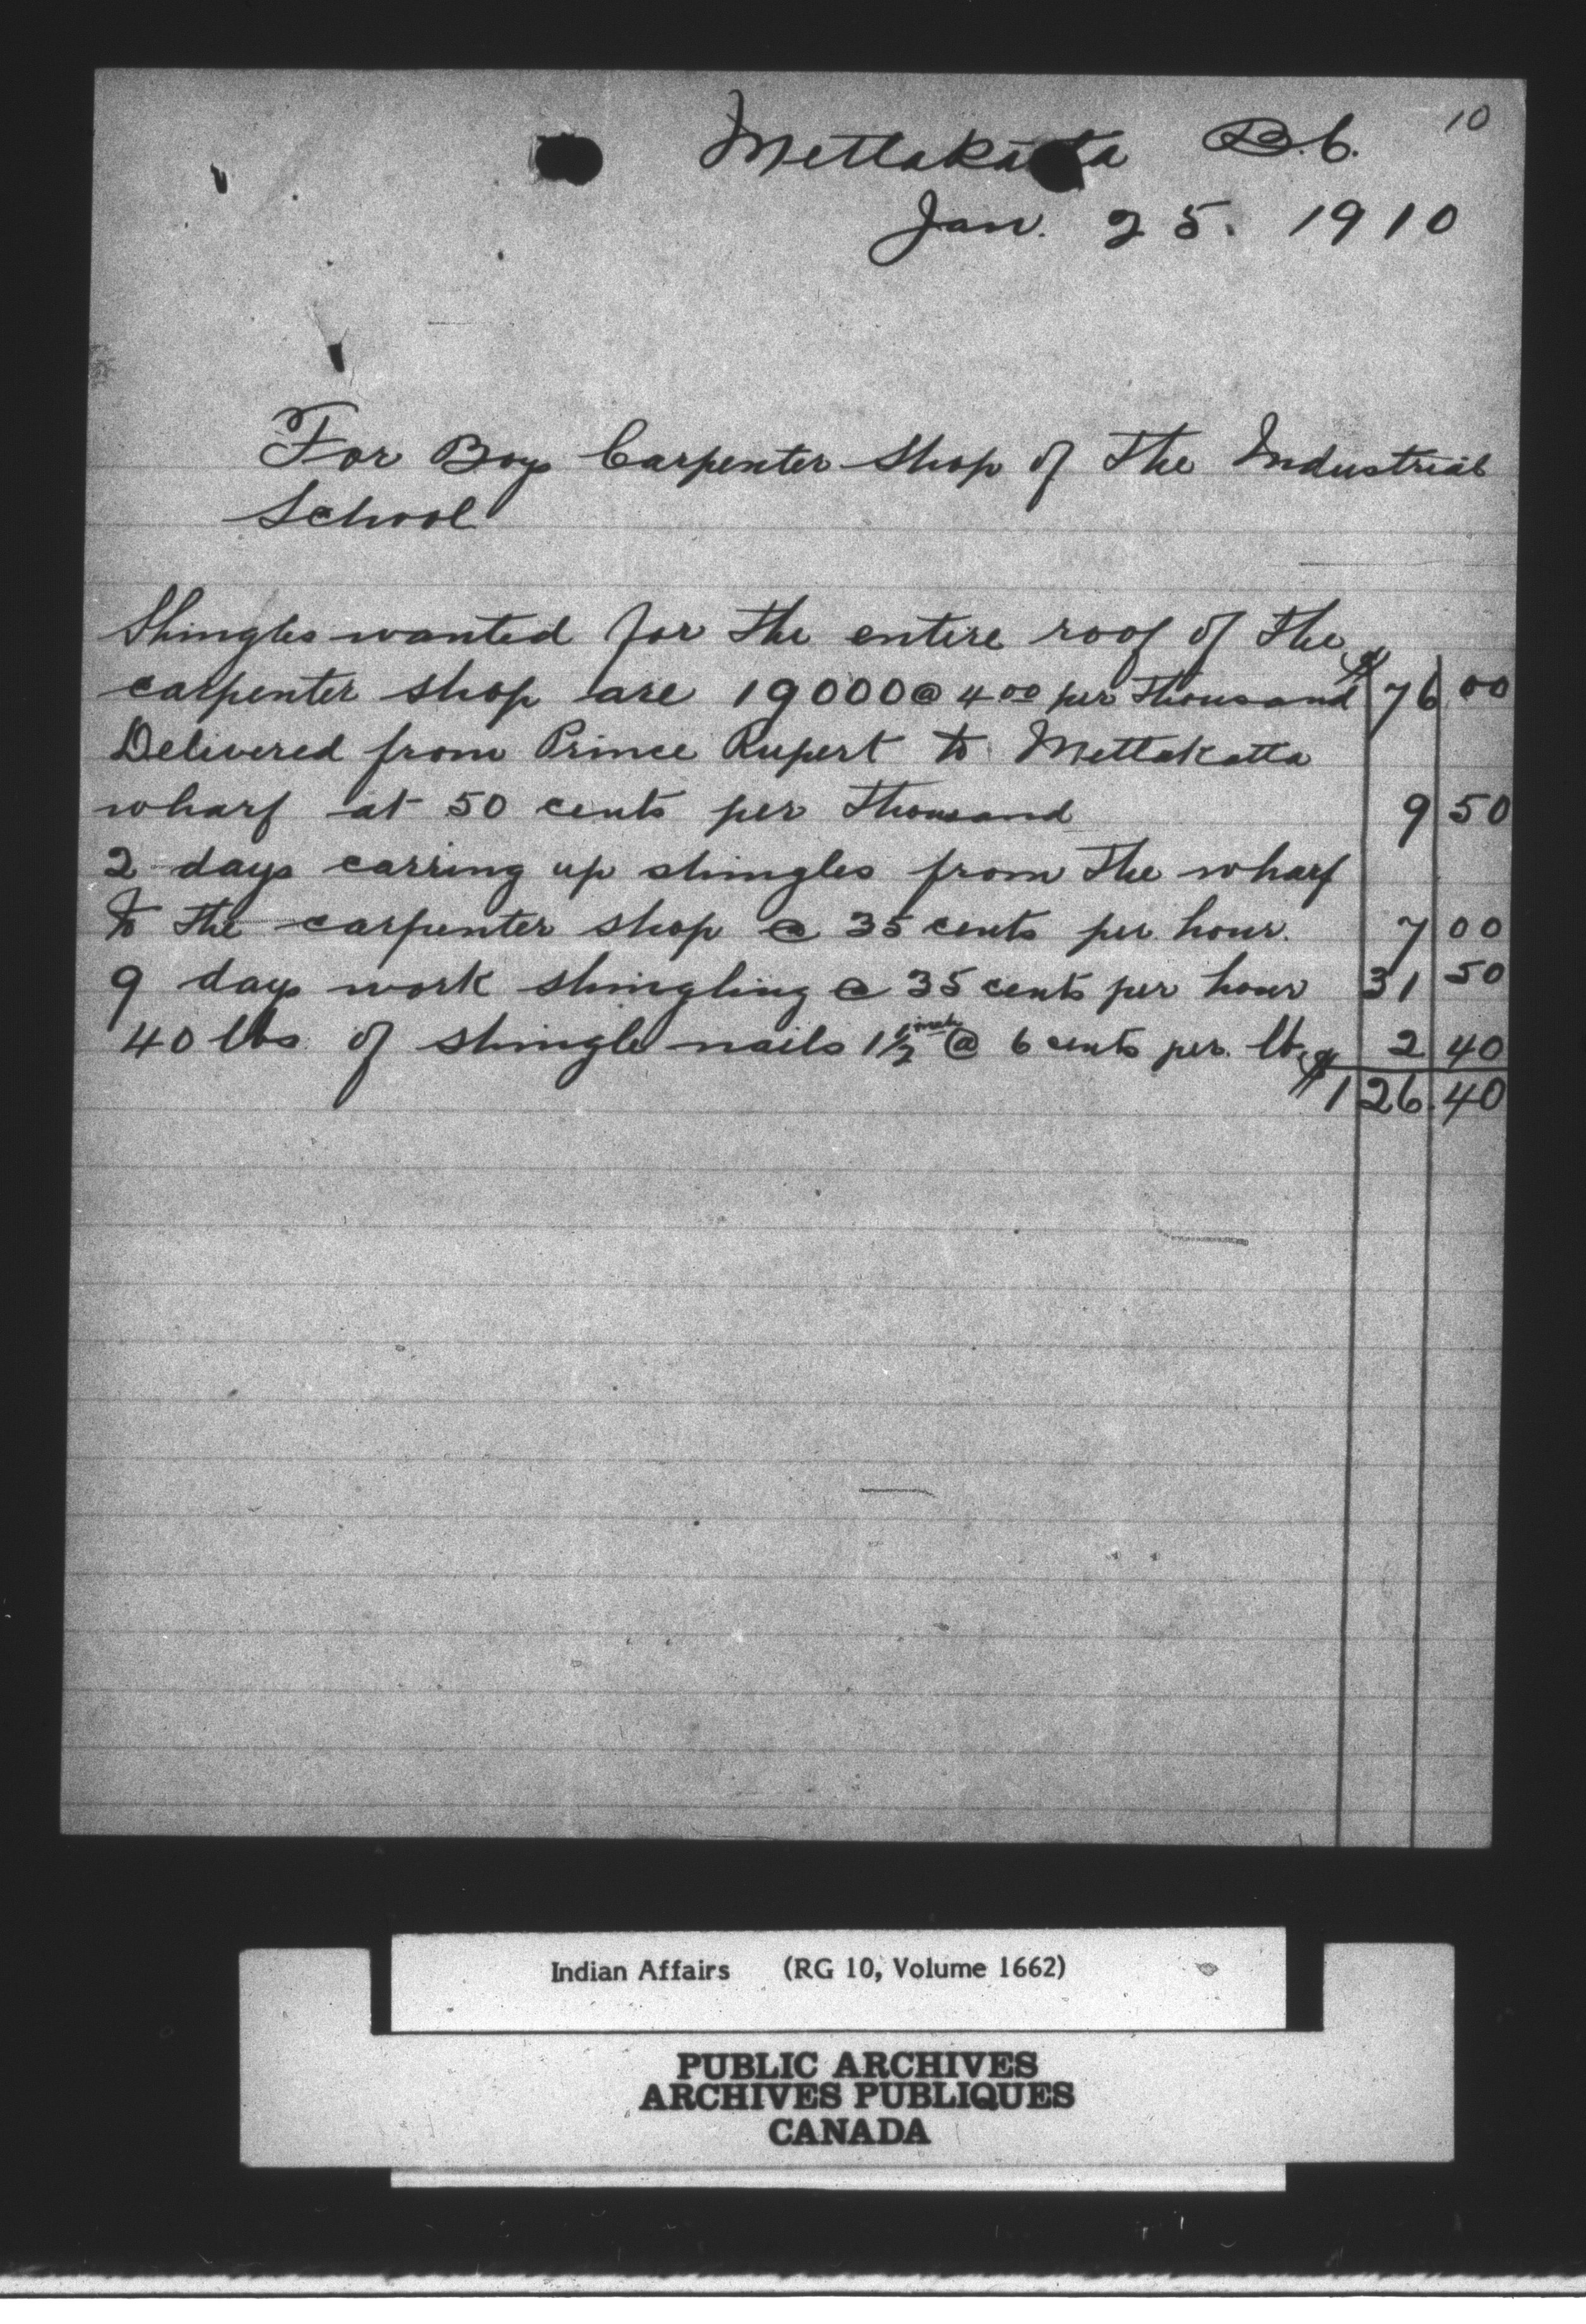 10
Metlakatla B.C.
Jan. 25. 1910
For Boys Carpenter Shop of The Industrial
School
Shingles wanted for the entire roof of the
carpenter shop are 19000 @ 4 00 per thousand $ 76 00
Delivered from Prince Rupert to Metlakatla
wharf at 50 cents per thousand 9 50
2 days carring up shingles from the wharf
to the carpenter shop @ 35 cents per hour. 7 00
9 days work shingling @ 35 cents per hour 31 50
40 lbs of shingle nails 1 1/2 inch @ 6 cents per. lb. 2 40
$ 126.40
Indian Affairs (RG 10, Volume 1662)
PUBLIC ARCHIVES
ARCHIVES PUBLIQUES
CANADA